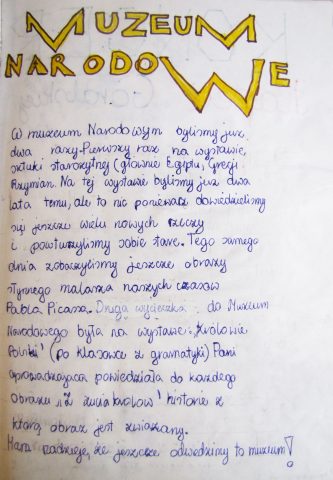 MUZEUM
NARODOWE
W muzeum Narodowym byliśmy już
dwa razy. Pierwszy raz na wystawie
sztuki starożytnej (głównie Egiptu, Grecji
Rzymian. Na tej wystawie byliśmy już dwa
lata temu, ale to nic ponieważ dowiedzieliśmy
się jeszcze wielu nowych rzeczy
i powtuzyliśmy sobie stare. Tego samego
dnia zobaczyliśmy jeszcze obrazy
słynnego malarza naszych czasów
Pabla Picassa. Druga wycieczka do Muzeum
Narodowego była na wystawę: „Królowie
Polski" (po klasówce z gramatyki) Pani
oprowadzająca powiedziała do każdego
obrazu „z życia królów" historie z
którą obraz jest związany.
Mam nadzieję, że jeszcze odwiedzimy to muzeum!